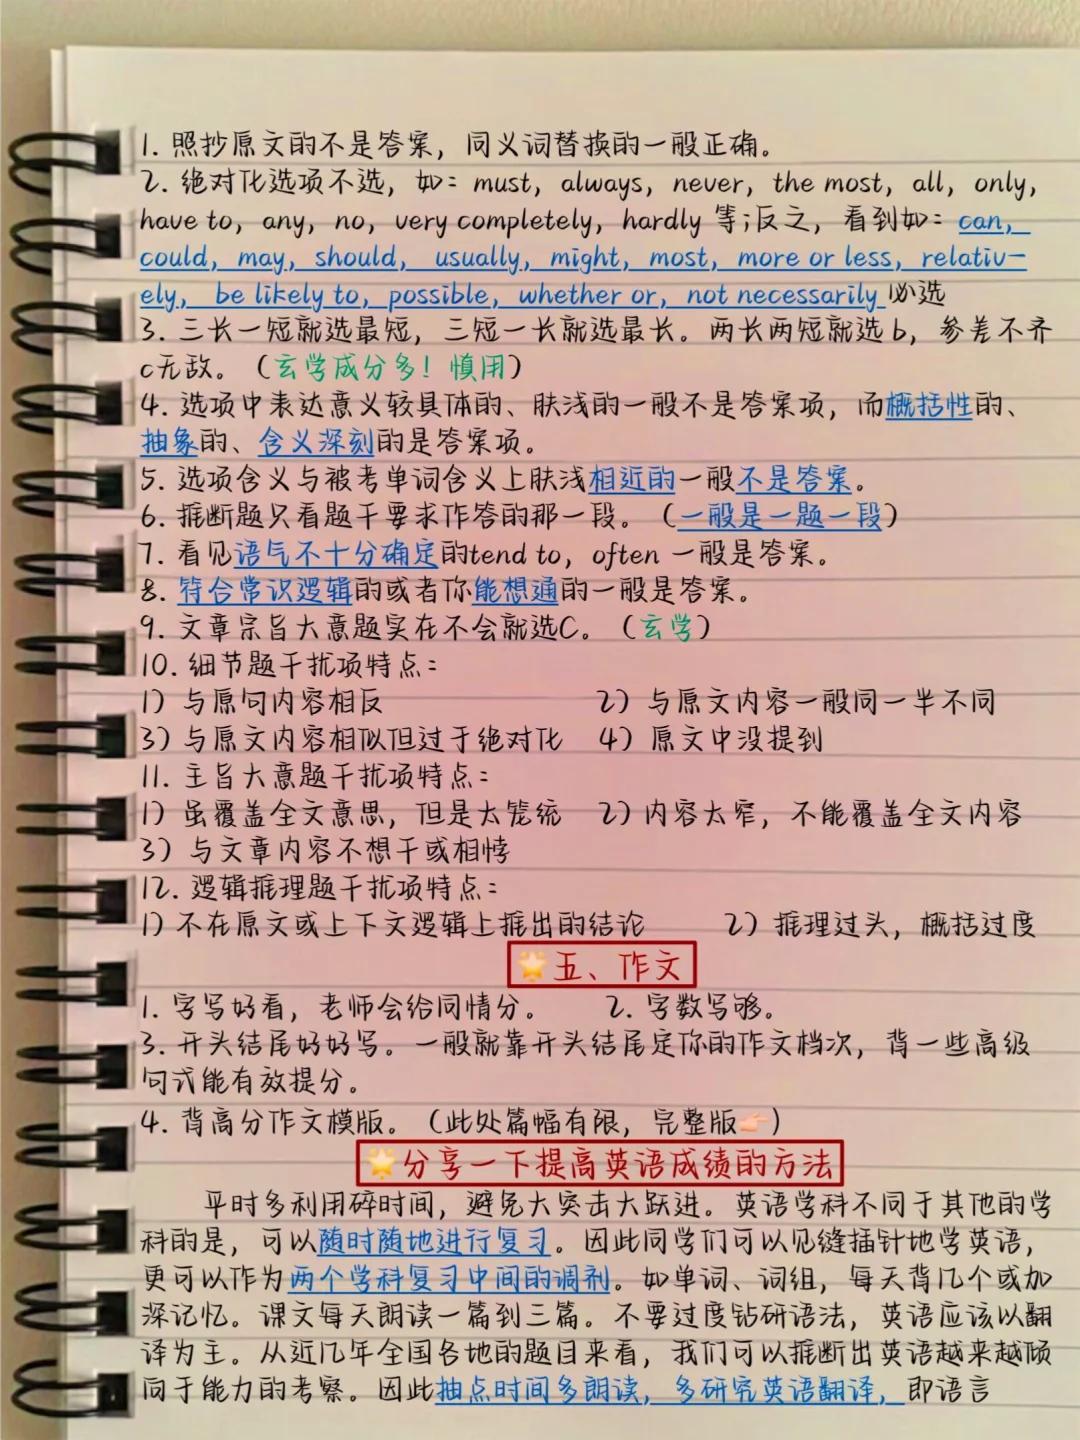 1. 照抄原文的不是答案，同义词替换的一般正确。
2. 绝对化选项不选，如：must，always，never，the most，all，only，
have to，any，no，very completely，hardly 等；反之，看到如：can，
could，may，should， usually，might，most，more or less，relativ-
ely， be likely to，possible，whether or，not necessarily 必选
3. 三长一短就选最短，三短一长就选最长。两长两短就选 b，参差不齐
c无敌。（玄学成分多！慎用）
4. 选项中表达意义较具体的、肤浅的一般不是答案项，而概括性的、
抽象的、含义深刻的是答案项。
5. 选项含义与被考单词含义上肤浅相近的一般不是答案。
6. 推断题只看题干要求作答的那一段。（一般是一题一段）
7. 看见语气不十分确定的tend to，often 一般是答案。
8. 符合常识逻辑的或者你能想通的一般是答案。
9. 文章宗旨大意题实在不会就选C。（玄学）
10. 细节题干扰项特点：
1）与原句内容相反 2）与原文内容一般同一半不同
3）与原文内容相似但过于绝对化 4）原文中没提到
11. 主旨大意题干扰项特点：
1）虽覆盖全文意思，但是太笼统 2）内容太窄，不能覆盖全文内容
3）与文章内容不想干或相悖
12. 逻辑推理题干扰项特点：
1）不在原文或上下文逻辑上推出的结论 2）推理过头，概括过度
🌟五、作文
1. 字写好看，老师会给同情分。 2. 字数写够。
3. 开头结尾好好写。一般就靠开头结尾定你的作文档次，背一些高级
句式能有效提分。
4. 背高分作文模版。（此处篇幅有限，完整版👉🏻）
🌟分享一下提高英语成绩的方法
平时多利用碎时间，避免大突击大跃进。英语学科不同于其他的学
科的是，可以随时随地进行复习。因此同学们可以见缝插针地学英语，
更可以作为两个学科复习中间的调剂。如单词、词组，每天背几个或加
深记忆。课文每天朗读一篇到三篇。不要过度钻研语法，英语应该以翻
译为主。从近几年全国各地的题目来看，我们可以推断出英语越来越倾
向于能力的考察。因此抽点时间多朗读，多研究英语翻译，即语言